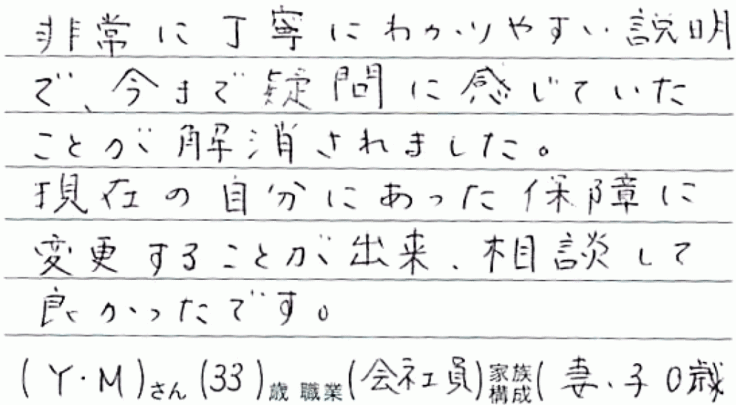 非常に丁寧にわかりやすい説明
で、今まで疑問に感じていた
ことが解消されました。
現在の自分にあった保障に
変更することが出来、相談して
良かったです。
(Y・M)さん(33)歳 職業(会社員)家族構成(妻、子0歳